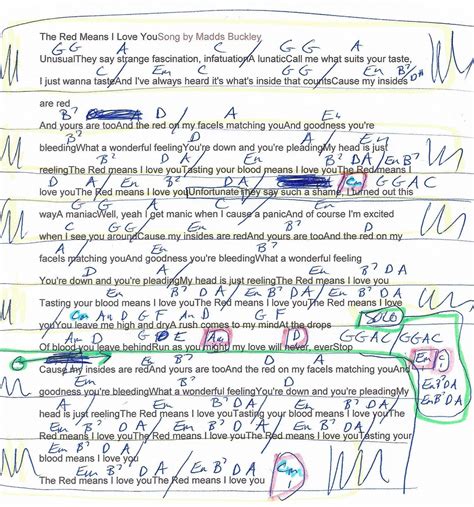 The Red Means I Love YouSong by Madds Buckley
G G A C G G A
UnusualThey say strange fascination, infatuationA lunaticCall me what suits your taste,
C Em C G G A C Em B7 D A
I just wanna tasteAnd I've always heard it's what's inside that countsCause my insides
are red
B7 A D A Em
And yours are tooAnd the red on my faceIs matching youAnd goodness you're
B7 D A
bleedingWhat a wonderful feelingYou're down and you're pleadingMy head is just
Em B7 D A Em B7 D A / Em B7
reelingThe Red means I love youTasting your blood means I love youThe Red means I
D A Em B7 D A Em G G A C
love youThe Red means I love youUnfortunateThey say such a shame, I turned out this
G G A C G G A C
wayA maniacWell, yeah I get manic when I cause a panicAnd of course I'm excited
Em B7 D
when I see you aroundCause my insides are redAnd yours are tooAnd the red on my
A Em B7
faceIs matching youAnd goodness you're bleedingWhat a wonderful feeling
D A Em B7 D A
You're down and you're pleadingMy head is just reelingThe Red means I love you
Em B7 D A Em B7 D A Em B7 D A
Tasting your blood means I love youThe Red means I love youThe Red means I love
Am D G F Am D G F SOLO
youYou leave me high and dryA rush comes to my mindAt the drops
Am D G E Am D G G A C / G G A C
Of blood you leave behindRun as you might, my love will never, everStop
Em B7 D A Em
Cause my insides are redAnd yours are tooAnd the red on my faceIs matching youAnd
B7 D Em B7 D A
goodness you're bleedingWhat a wonderful feelingYou're down and you're pleadingMy
A Em B7 D A Em B7 D A Em B7 D A
head is just reelingThe Red means I love youTasting your blood means I love youThe
Em B7 D A Em B7 D A Em B7 D A
Red means I love youThe Red means I love youThe Red means I love youTasting your
Em B7 D A
blood means I love you
Em B7 D A Em B7 D A
The Red means I love youThe Red means I love you